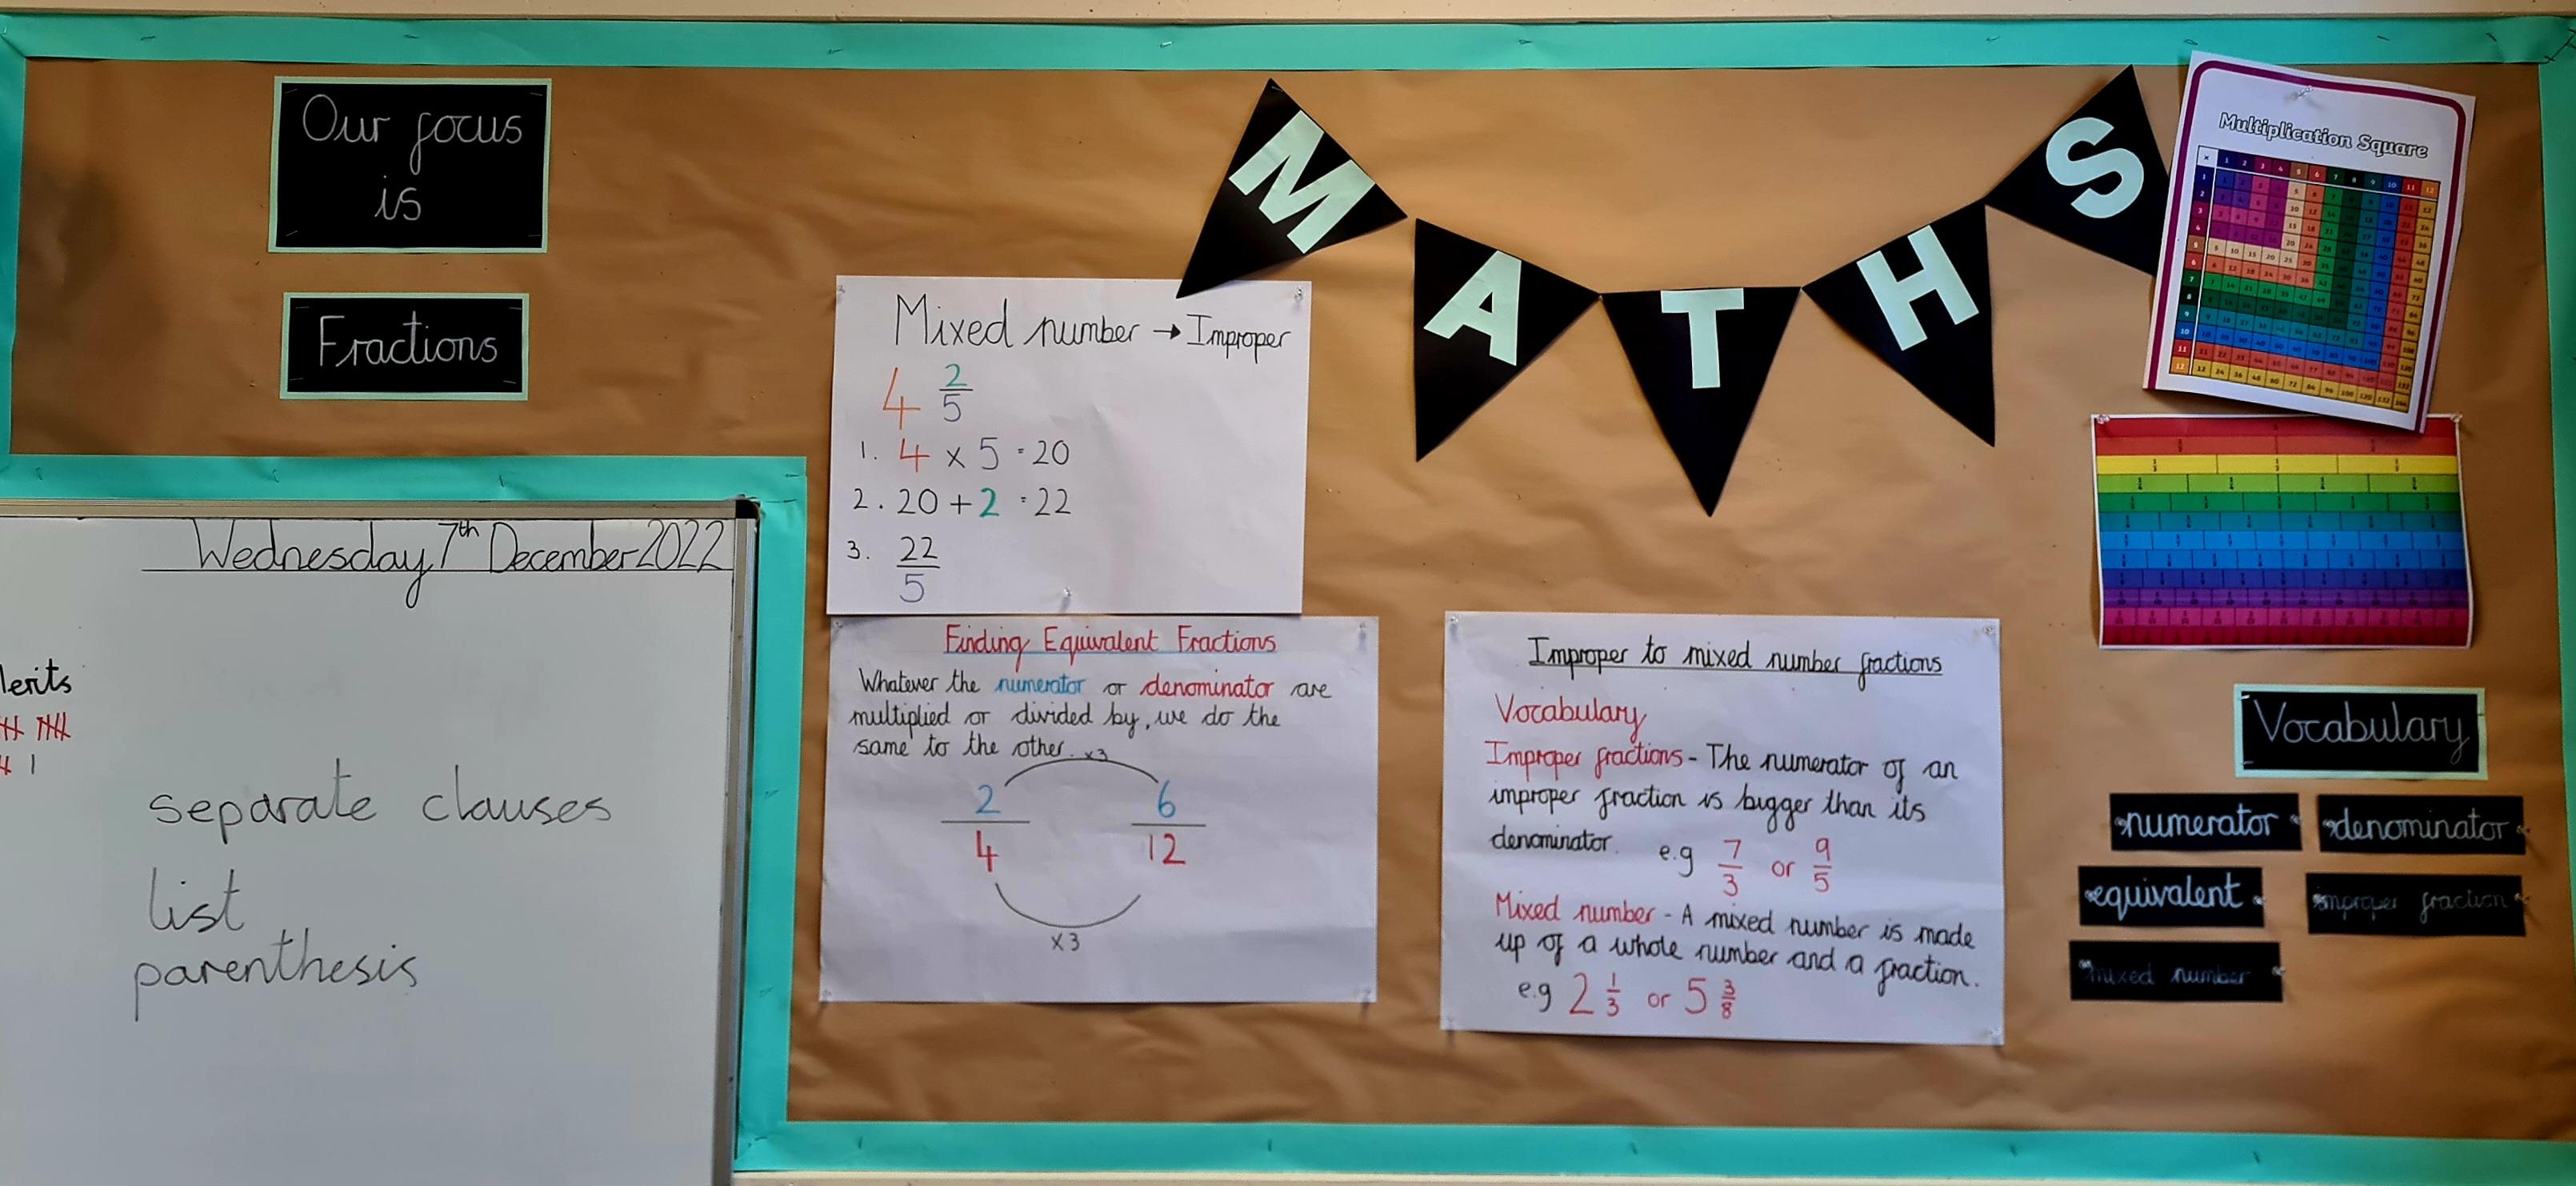 Our focus
is
Fractions
Wednesday 7th December 2022
separate clauses
list
parenthesis
MATHS
Mixed number → Improper
4 2/5
1. 4 x 5 = 20
2. 20 + 2 = 22
3. 22/5
Finding Equivalent Fractions
Whatever the numerator or denominator are
multiplied or divided by, we do the
same to the other.
x3
2/4 6/12
x3
Improper to mixed number fractions
Vocabulary
Improper fractions - The numerator of an
improper fraction is bigger than its
denominator. e.g 7/3 or 9/5
Mixed number - A mixed number is made
up of a whole number and a fraction.
e.g 2 1/3 or 5 3/8
Multiplication Square
x 1 2 3 4 5 6 7 8 9 10 11 12
Vocabulary
numerator denominator
equivalent improper fraction
mixed number